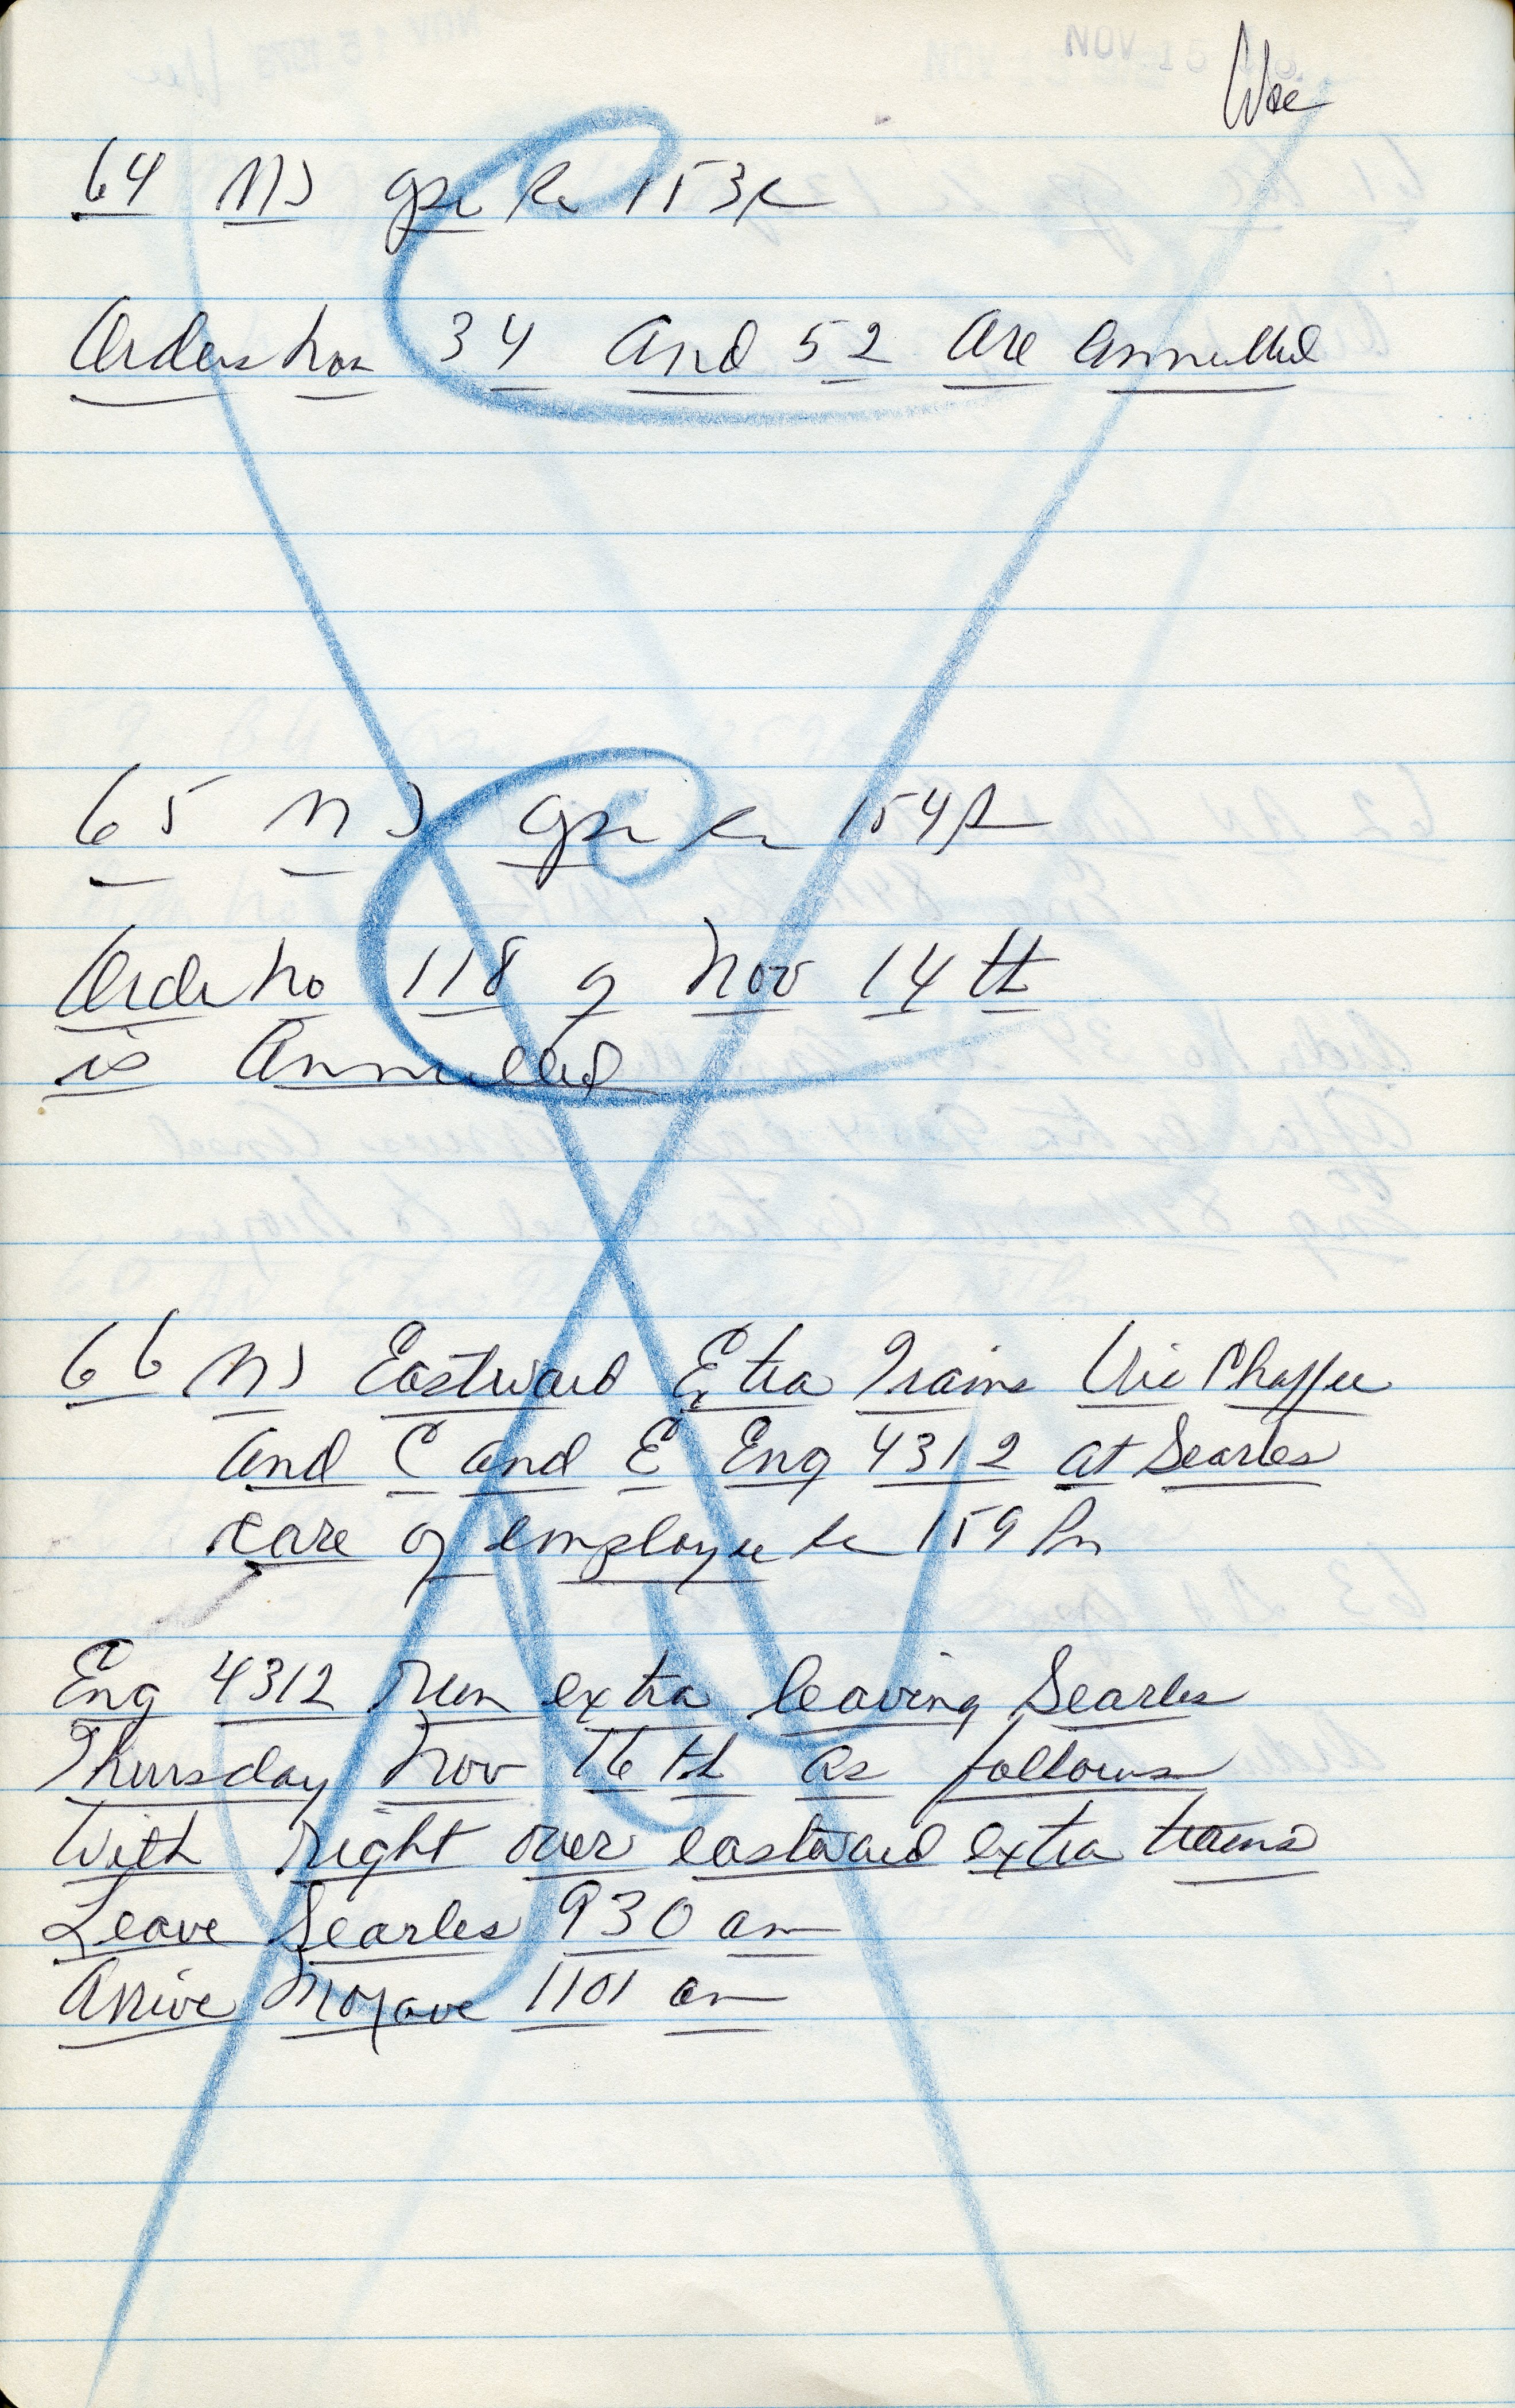 NOV 15
64 MJ
153P
Orders Nos 34 and 52 are annulled
65 MJ
154P
Order No 118 of Nov 14th
is Annulled
66 MJ Eastward Extra Trains Via Chaffee
and C and E Eng 4312 at Searles
care of employee 159 Pm
Eng 4312 run extra leaving Searles
Thursday Nov 16th as follows
With right over eastward extra trains
Leave Searles 930 am
Arrive Mojave 1101 am